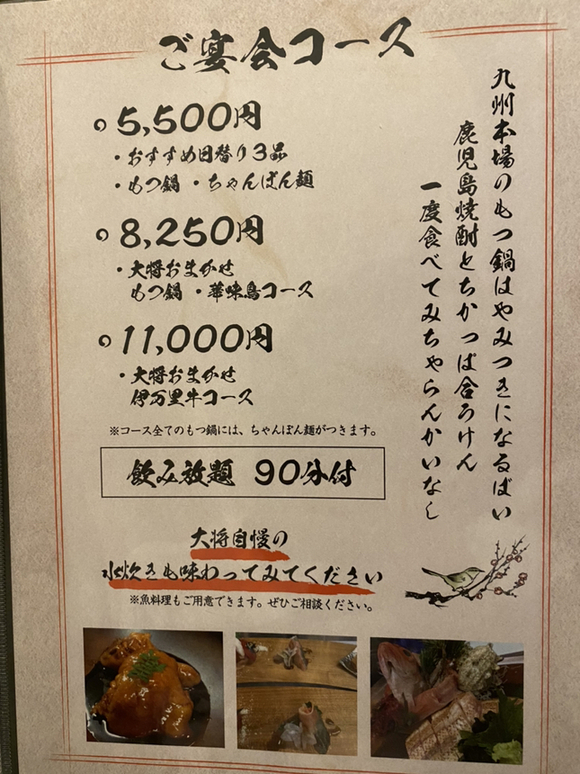 ご宴会コース
5,500円
・おすすめ日替り3品
・もつ鍋 ・ちゃんぽん麺
8,250円
・大将おまかせ
もつ鍋 ・華味鳥コース
11,000円
・大将おまかせ
伊万里牛コース
※コース全てのもつ鍋には、ちゃんぽん麺がつきます。
飲み放題 90分付
大将自慢の
水炊きも味わってみてください
※魚料理もご用意できます。ぜひご相談ください。
九州本場のもつ鍋はやみつきになるばい
鹿児島焼酎とちかっぱ合うけん
一度食べてみちゃらんかいなし